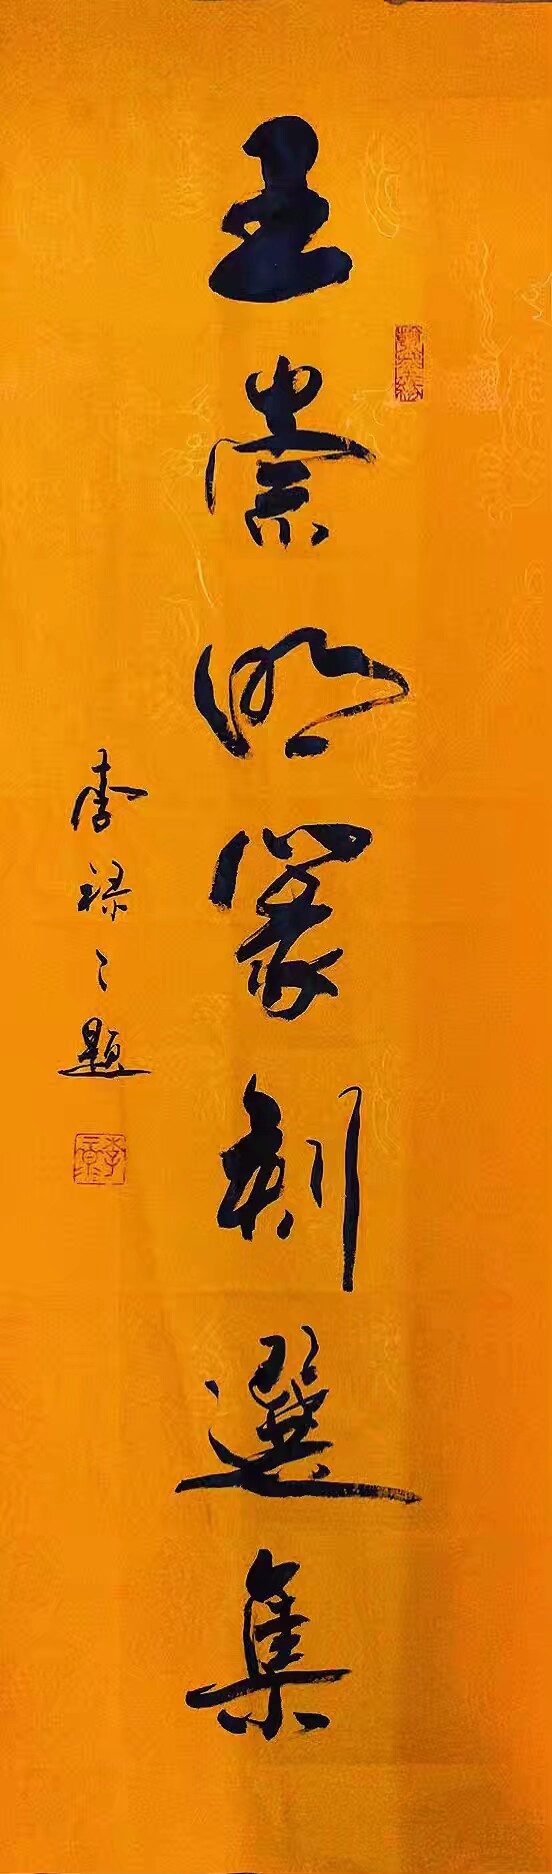 王崇明篆刻選集
李禄之題